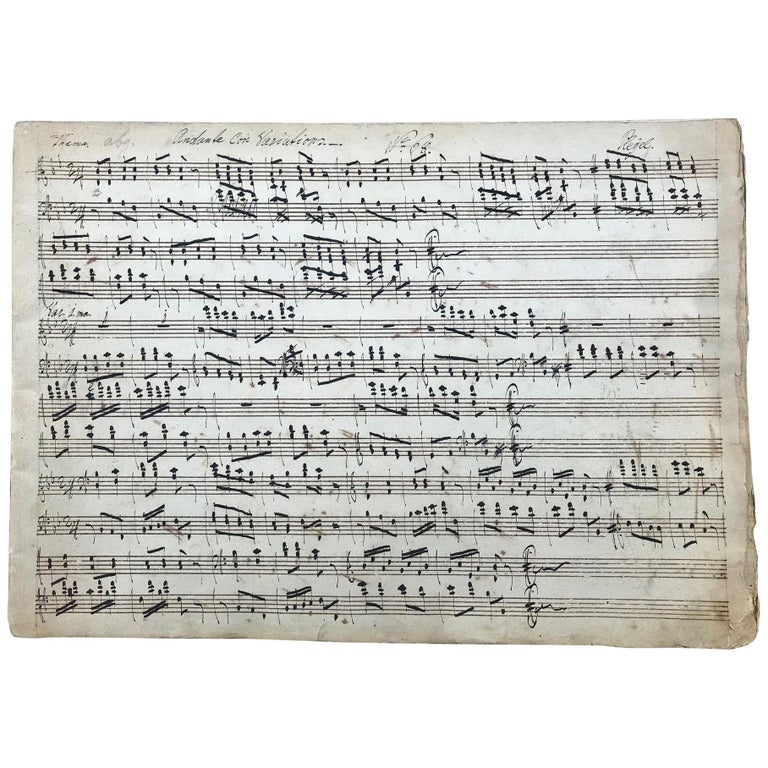 Thema. Andante Con Variations.— No. 68. Pleÿel.
Var. 1.ma.